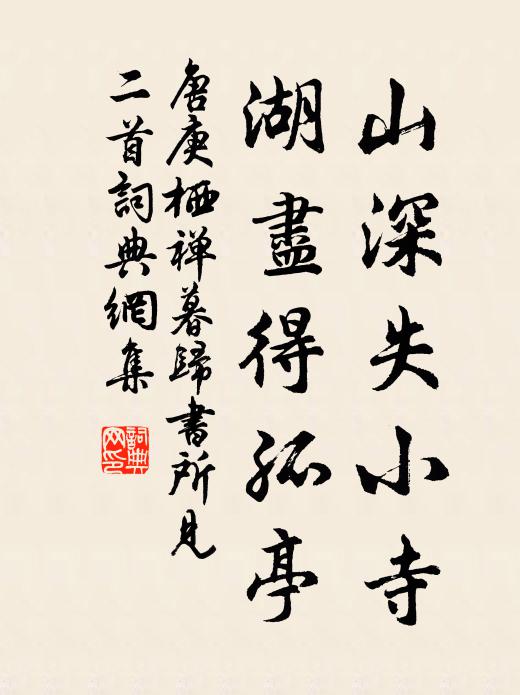 山深失小寺
湖盡得孤亭
唐庚栖禅暮歸書所見
二首詞典網集
詞典
网印